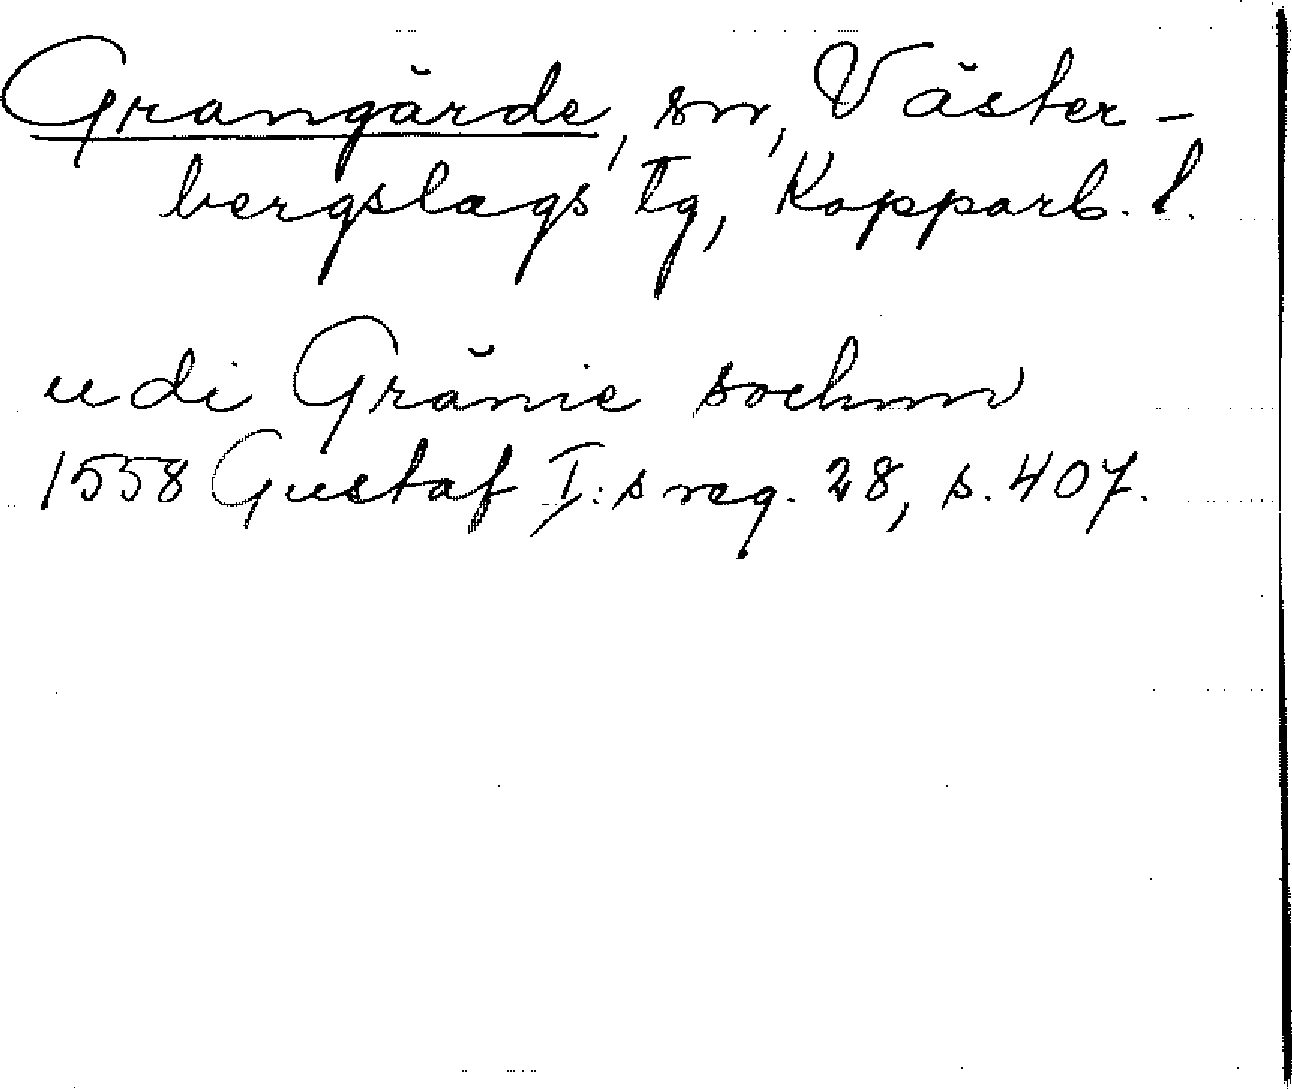 Grangärde, sn, Väster-
bergslags tg, Kopparb. l.
udi Gränie sochnn
1558 Gustaf I:s reg. 28, s. 407.